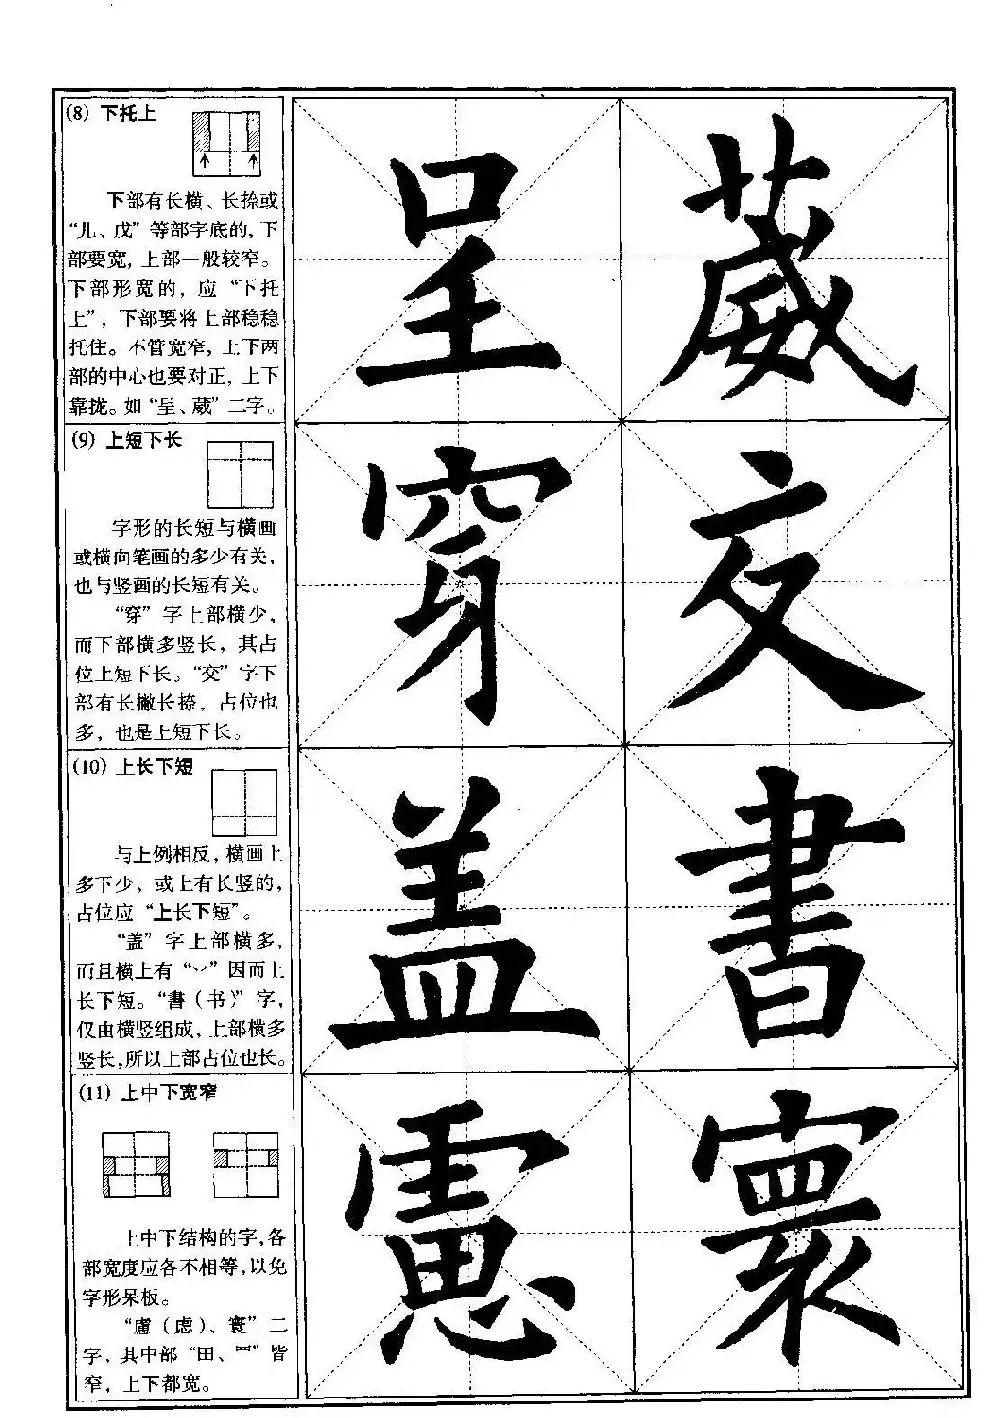 (8) 下托上
下部有长横、长捺或
“儿、戊”等部字底的，下
部要宽，上部一般较窄。
下部形宽的，应“下托
上”，下部要将上部稳稳
托住。不管宽窄，上下两
部的中心也要对正，上下
靠拢。如“呈、葳”二字。
呈 葳
(9) 上短下长
字形的长短与横画
或横向笔画的多少有关，
也与竖画的长短有关。
“穿”字上部横少，
而下部横多竖长，其占
位上短下长。“交”字下
部有长撇长捺，占位也
多，也是上短下长。
穿 交
(10) 上长下短
与上例相反，横画上
多下少，或上有长竖的，
占位应“上长下短”。
“盖”字上部横多，
而且横上有“丷”因而上
长下短。“書（书）”字，
仅由横竖组成，上部横多
竖长，所以上部占位也长。
盖 書
(11) 上中下宽窄
上中下结构的字，各
部宽度应各不相等，以免
字形呆板。
“慮（虑）、寰”二
字，其中部“田、罒”皆
窄，上下都宽。
慮 寰